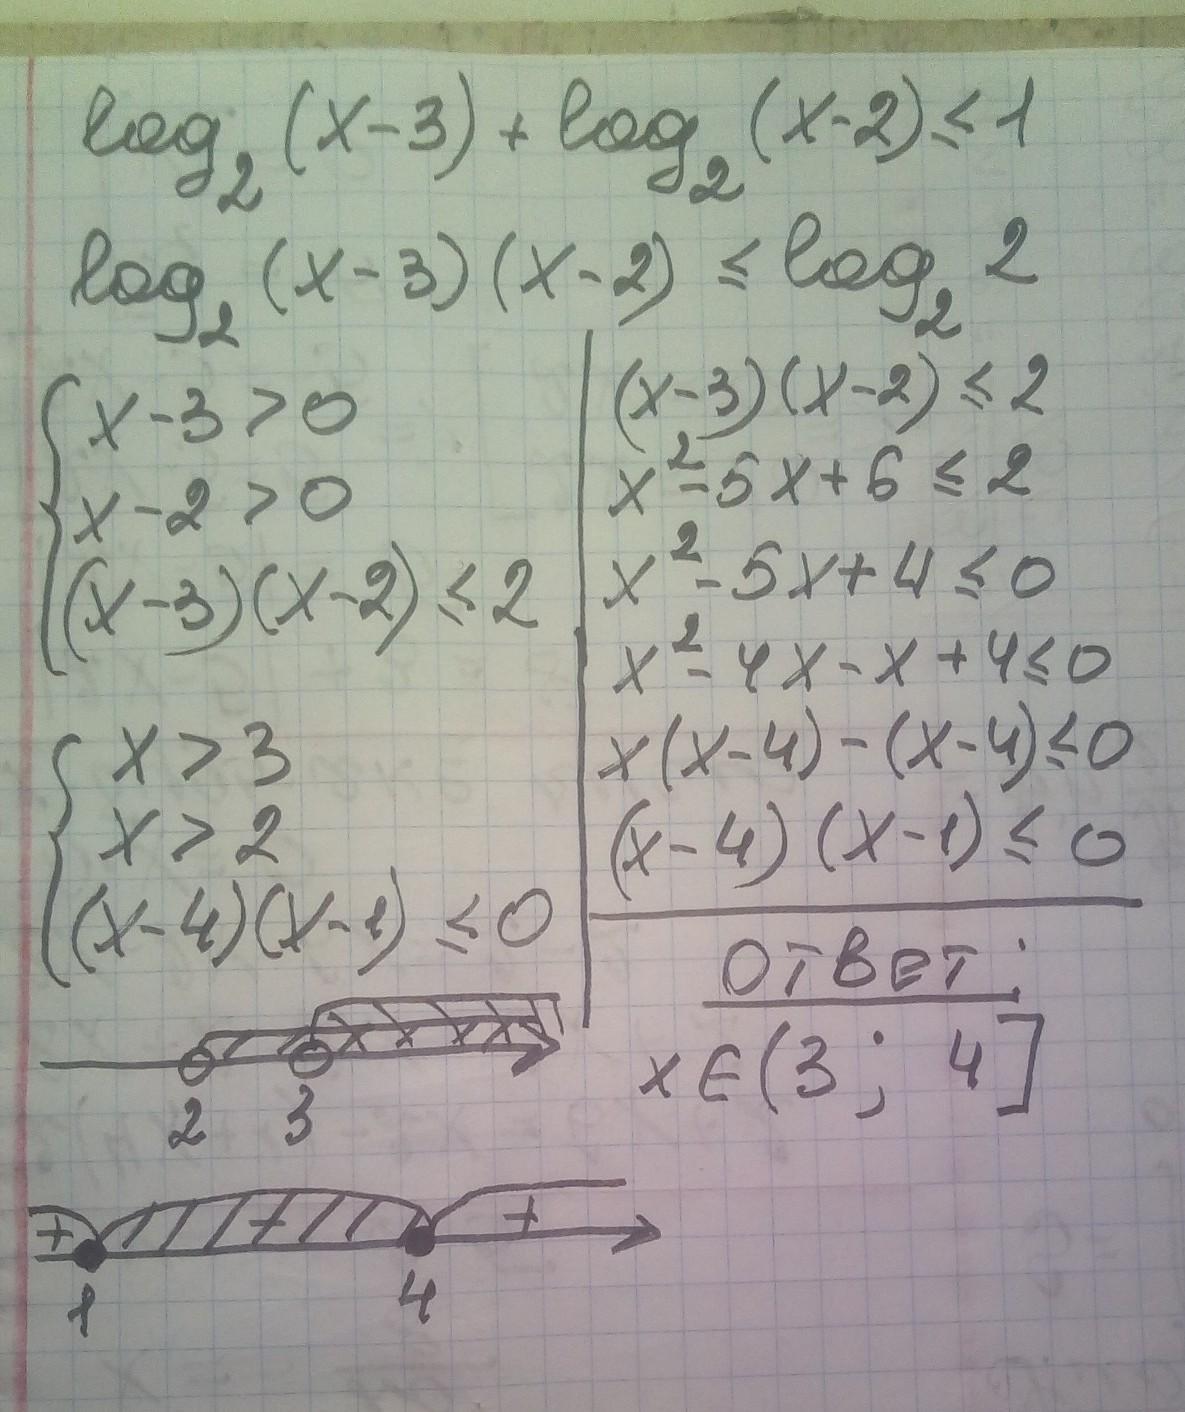 log₂(x-3)+log₂(x-2)≤1
log₂(x-3)(x-2)≤log₂2
x-3>0
x-2>0
(x-3)(x-2)≤2
x>3
x>2
(x-4)(x-1)≤0
2 3
+ - +
1 4
(x-3)(x-2)≤2
x²-5x+6≤2
x²-5x+4≤0
x²-4x-x+4≤0
x(x-4)-(x-4)≤0
(x-4)(x-1)≤0
Ответ:
x∈(3; 4]